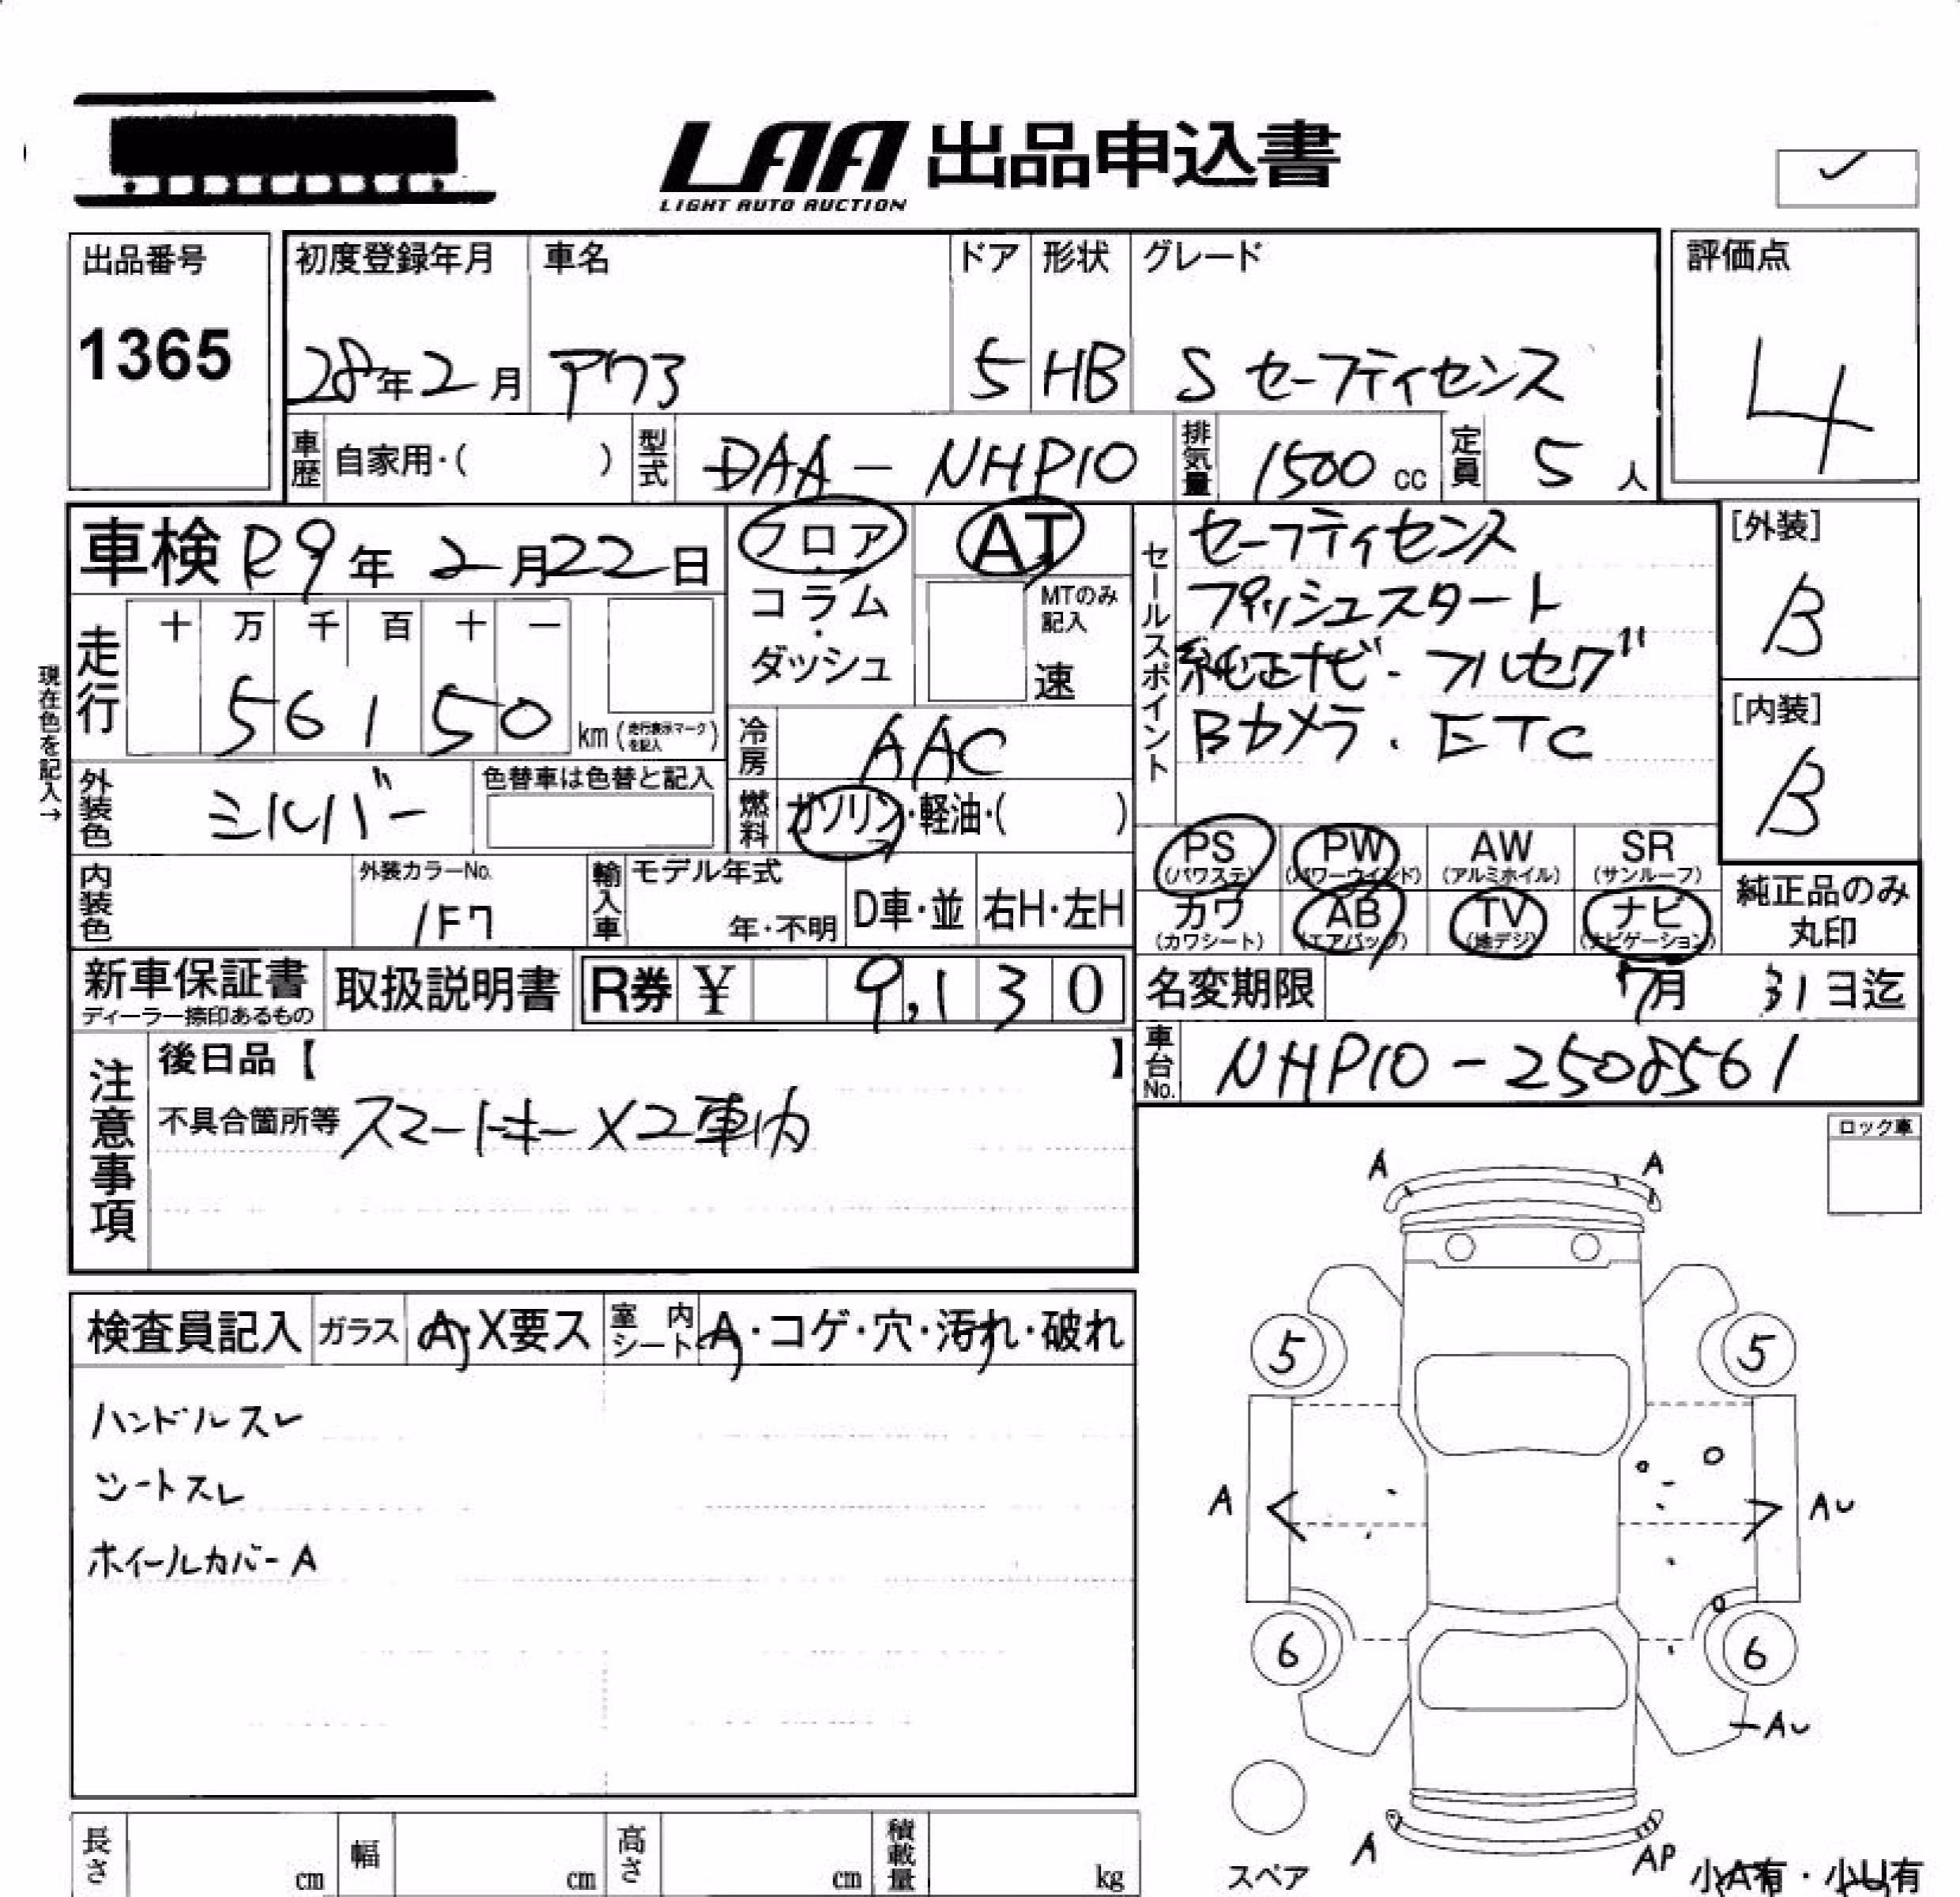 LAA 出品申込書
LIGHT AUTO AUCTION
出品番号
1365
初度登録年月
28年2月
車名
アクア
ドア
5
形状
HB
グレード
S セーフティセンス
評価点
4
車歴
自家用・( )
型式
DAA-NHP10
排気量
1500 cc
定員
5 人
車検 R9年 2月22日
フロア・コラム・ダッシュ
AT
MTのみ記入
速
セールスポイント
セーフティセンス
プッシュスタート
純正ナビ・フルセグ
Bカメラ.ETC
[外装]
B
[内装]
B
現在色を記入→
走行
十 万 千 百 十 一
5 6 1 5 0
km(走行表示マークを記入)
冷房
AAC
外装色
シルバー
色替車は色替と記入
燃料
ガソリン・軽油・( )
PS (パワステ)
PW (パワーウインド)
AW (アルミホイル)
SR (サンルーフ)
カワ (カワシート)
AB (エアバック)
TV (地デジ)
ナビ (ナビゲーション)
純正品のみ
丸印
内装色
外装カラーNo.
1F7
輸入車
モデル年式
年・不明
D車・並
右H・左H
新車保証書
ディーラー捺印あるもの
取扱説明書
R券 ¥ 9,130
名変期限
7月 31日迄
車台No.
NHP10-2508561
注意事項
後日品【 】
不具合箇所等 スマートキー×2車内
ロック車
検査員記入
ガラス
A・X要ス
室内シート
A・コゲ・穴・汚れ・破れ
ハンドルスレ
シートスレ
ホイールカバーA
A A
5 5
A AU
6 6
AU
A AP
スペア
小A有・小U有
長さ cm
幅 cm
高さ cm
積載量 kg